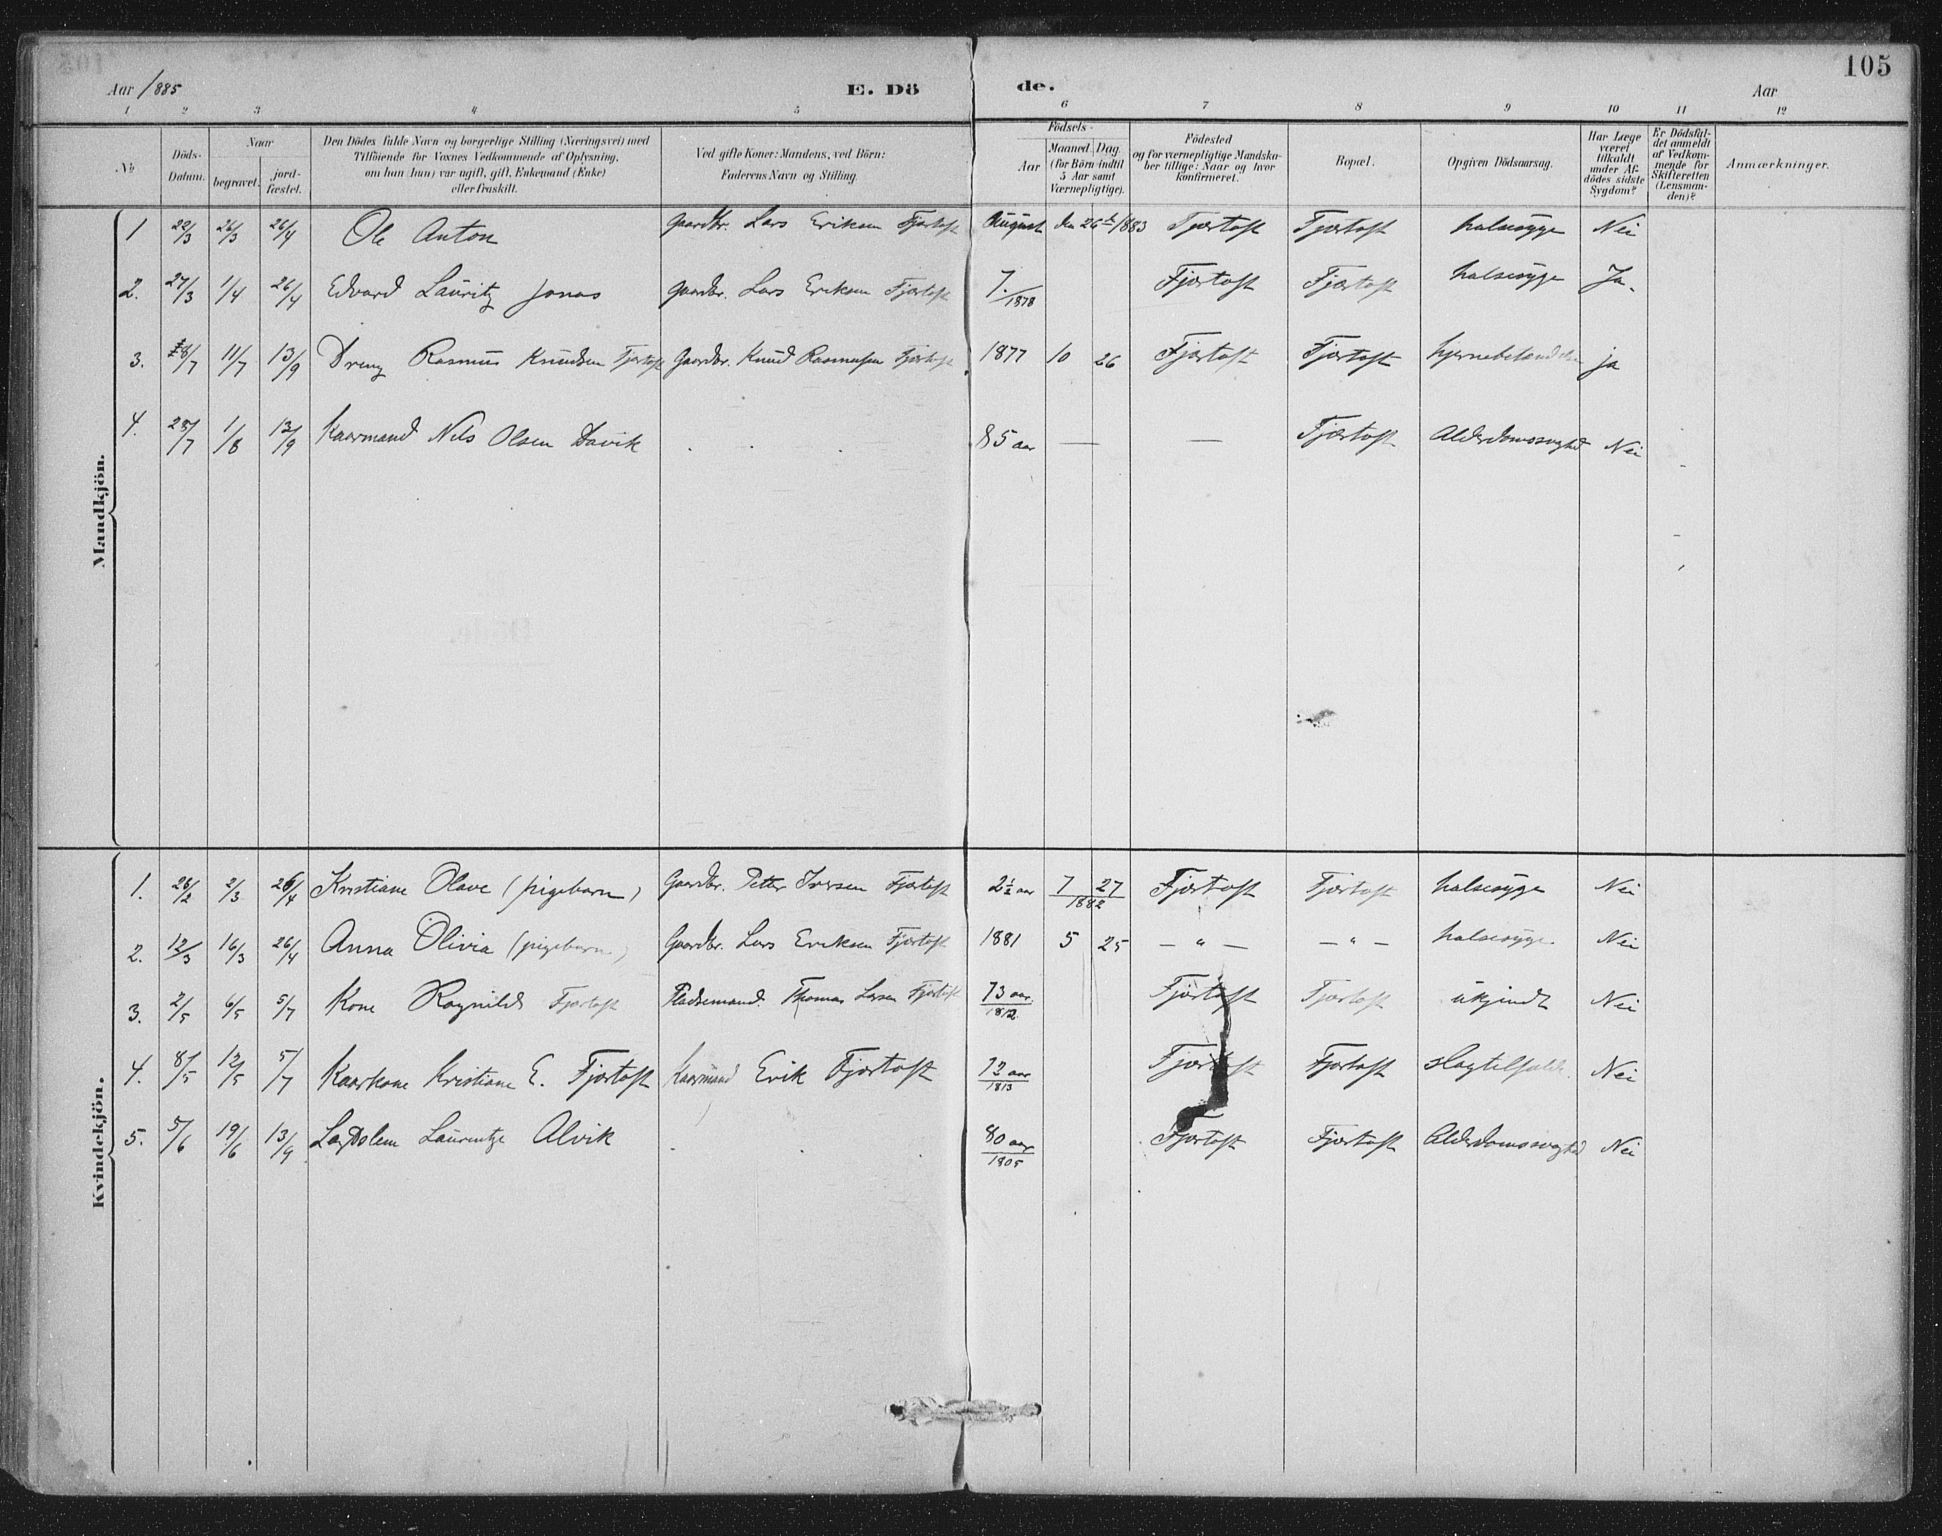 105
Aar 1885 E. Dö de. Aar
1 2 3 4 5 6 7 8 9 10 11 12
No
Döds-Datum.
Naar
begravet.
jord-fæstet.
Den Dödes fulde Navn og borgerlige Stilling (Næringsvei) med
Tilföiende for Voxnes Vedkommende af Oplysning,
om han (hun) var ugift, gift, Enkemand (Enke)
eller fraskilt.
Ved gifte Koner: Mandens, ved Börn:
Faderens Navn og Stilling.
Födsels-
Aar
Maaned Dag
(for Börn indtil
5 Aar samt
Værnepligtige).
Födested
og for værnepligtige Mandska-
ber tillige: Naar og hvor
konfirmeret.
Bopæl.
Opgiven Dödsaarsag.
Har Læge
været
tilkaldt
under Af-
dödes sidste
Sygdom?
Er Dödsfal-
det anmeldt
af Vedkom-
mende for
Skifteretten
(Lensman-
den)?
Anmærkninger.
Mandkjön.
1 22/3 26/3 26/4 Ole Anton Gaardbr. Lars Eriksen Fjørtoft August den 26de 1883 Fjørtoft Fjørtoft halssyge Nei
2. 27/3 1/4 26/4 Edvard Lauritz Jonas Gaardbr. Lars Eriksen Fjørtoft 7/1878 Fjørtoft Fjørtoft halssyge Ja.
3. 8/7 11/7 13/9 Dreng Rasmus Knudsen Fjørtoft Gaardbr. Knud Rasmussen Fjørtoft. 1877 10 26 Fjørtoft Fjørtoft hjernebetændelse ja
4. 28/7 1/8 13/9 Kaarmand Nils Olsen Davik . . . 85 aar — — Fjørtoft Alderdomssvaghed Nei
Kvindekjön.
1. 26/2 2/3 26/4 Kristiane Olave (pigebarn) Gaardbr. Petter Iversen Fjørtoft 2½ aar 7 27 1882 Fjørtoft Fjørtoft halssyge Nei
2. 12/3 16/3 26/4 Anna Olivia (pigebarn) Gaardbr. Lars Eriksen Fjørtoft 1881 5 25 — " — — " — halssyge. Nei
3. 2/5 6/5 5/7 Kone Ragnild Fjørtoft Pladsemand. Thomas Larsen Fjørtoft 73 aar. 1812 Fjørtoft Fjørtoft ukjendt Nei
4. 8/5 12/5 5/7 Kaarkone Kristiane E. Fjørtoft Kaarmand Erik Fjørtoft 72 aar 1813 Fjørtoft Fjørtoft slagtilfælde. Nei
5. 5/6 19/6 13/9 Laurentze Alvik . . . 80 aar 1805 Fjørtoft Fjørtoft Alderdomssvaghed Nei